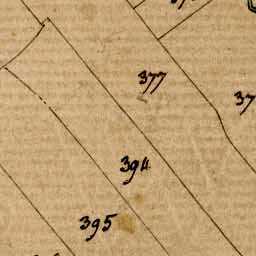 377
37
394
395